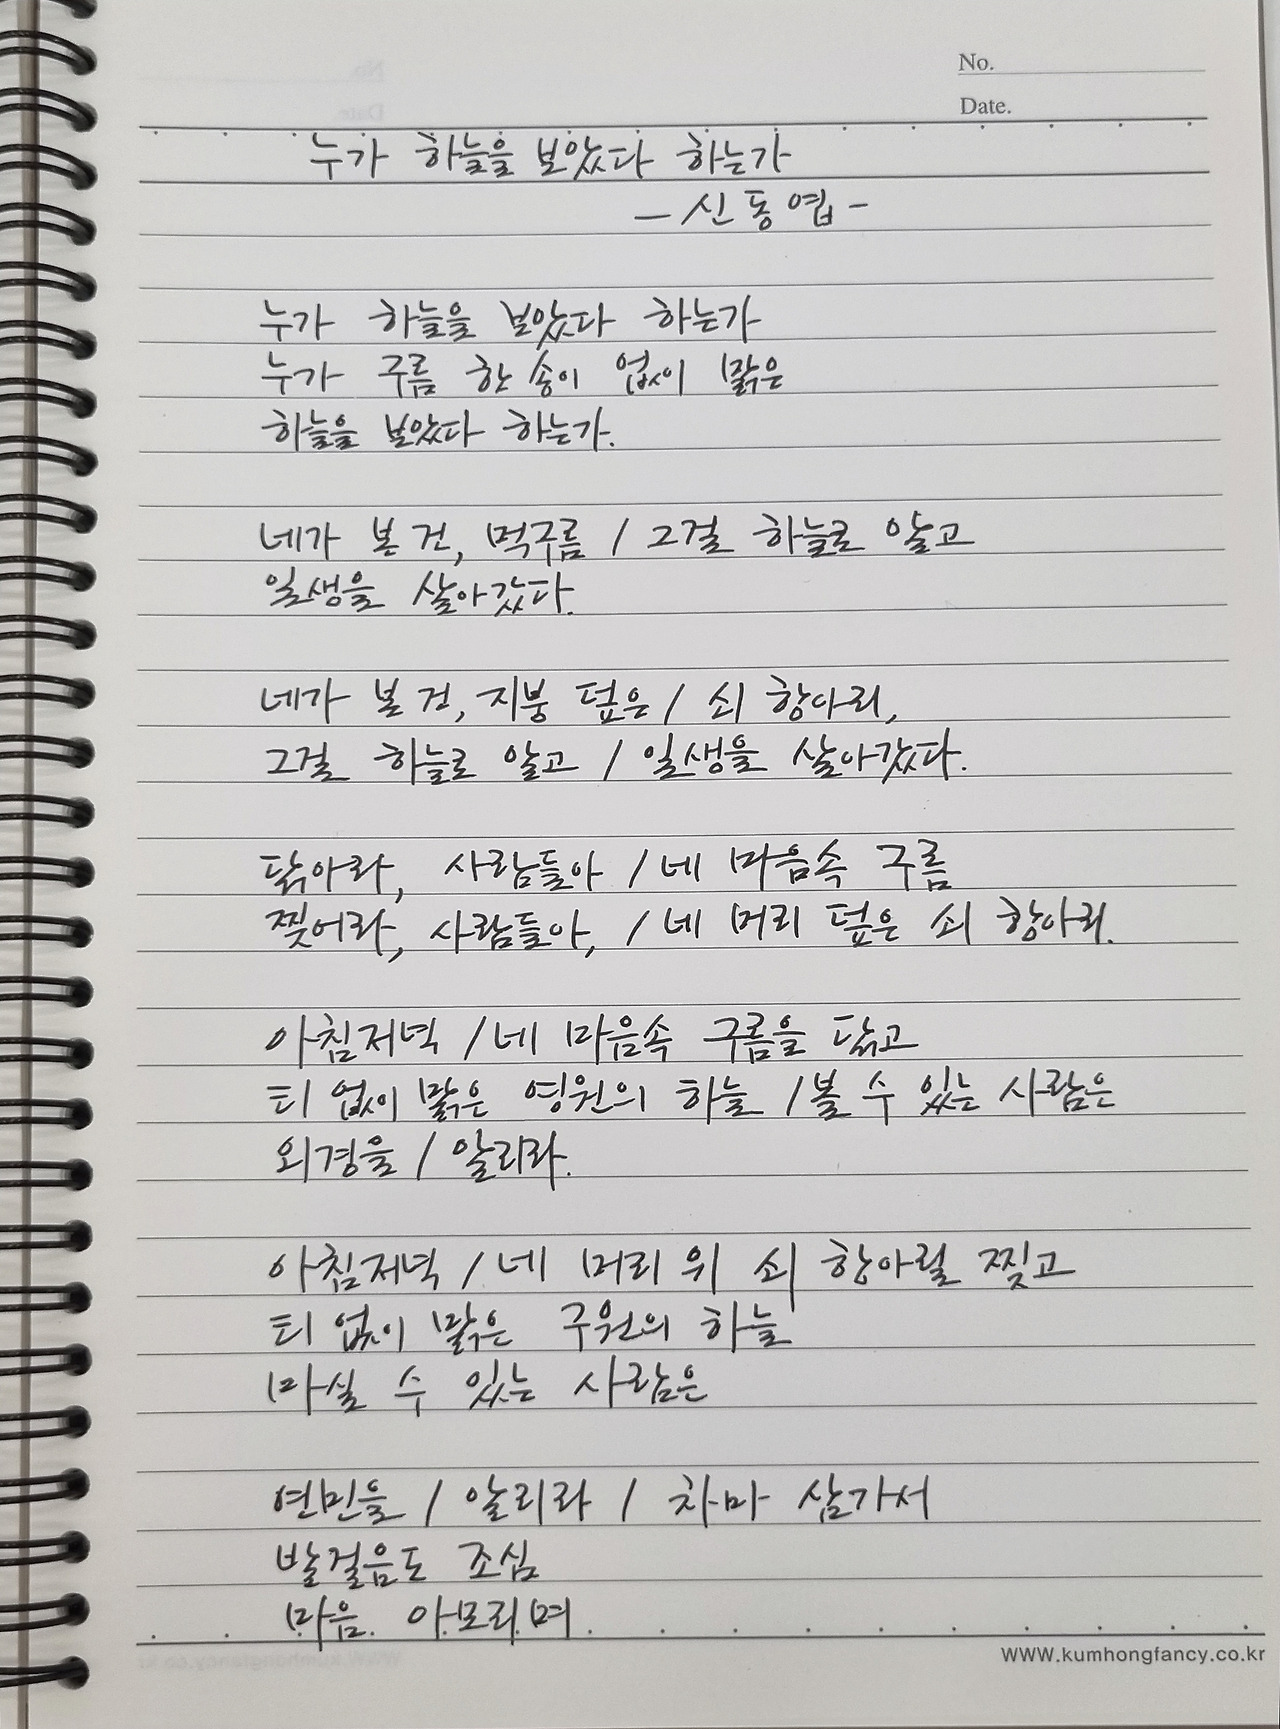 No.
Date.
누가 하늘을 보았다 하는가
- 신동엽 -
누가 하늘을 보았다 하는가
누가 구름 한 송이 없이 맑은
하늘을 보았다 하는가.
네가 본 건, 먹구름 / 그걸 하늘로 알고
일생을 살아갔다.
네가 본 건, 지붕 덮은 / 쇠 항아리,
그걸 하늘로 알고 / 일생을 살아갔다.
닦아라, 사람들아 / 네 마음속 구름
찢어라, 사람들아, / 네 머리 덮은 쇠 항아리.
아침저녁 / 네 마음속 구름을 닦고
티 없이 맑은 영원의 하늘 / 볼 수 있는 사람은
외경을 / 알리라.
아침저녁 / 네 머리 위 쇠 항아릴 찢고
티 없이 맑은 구원의 하늘
마실 수 있는 사람은
연민을 / 알리라 / 차마 삼가서
발걸음도 조심
마음 아모리며
WWW.kumhongfancy.co.kr